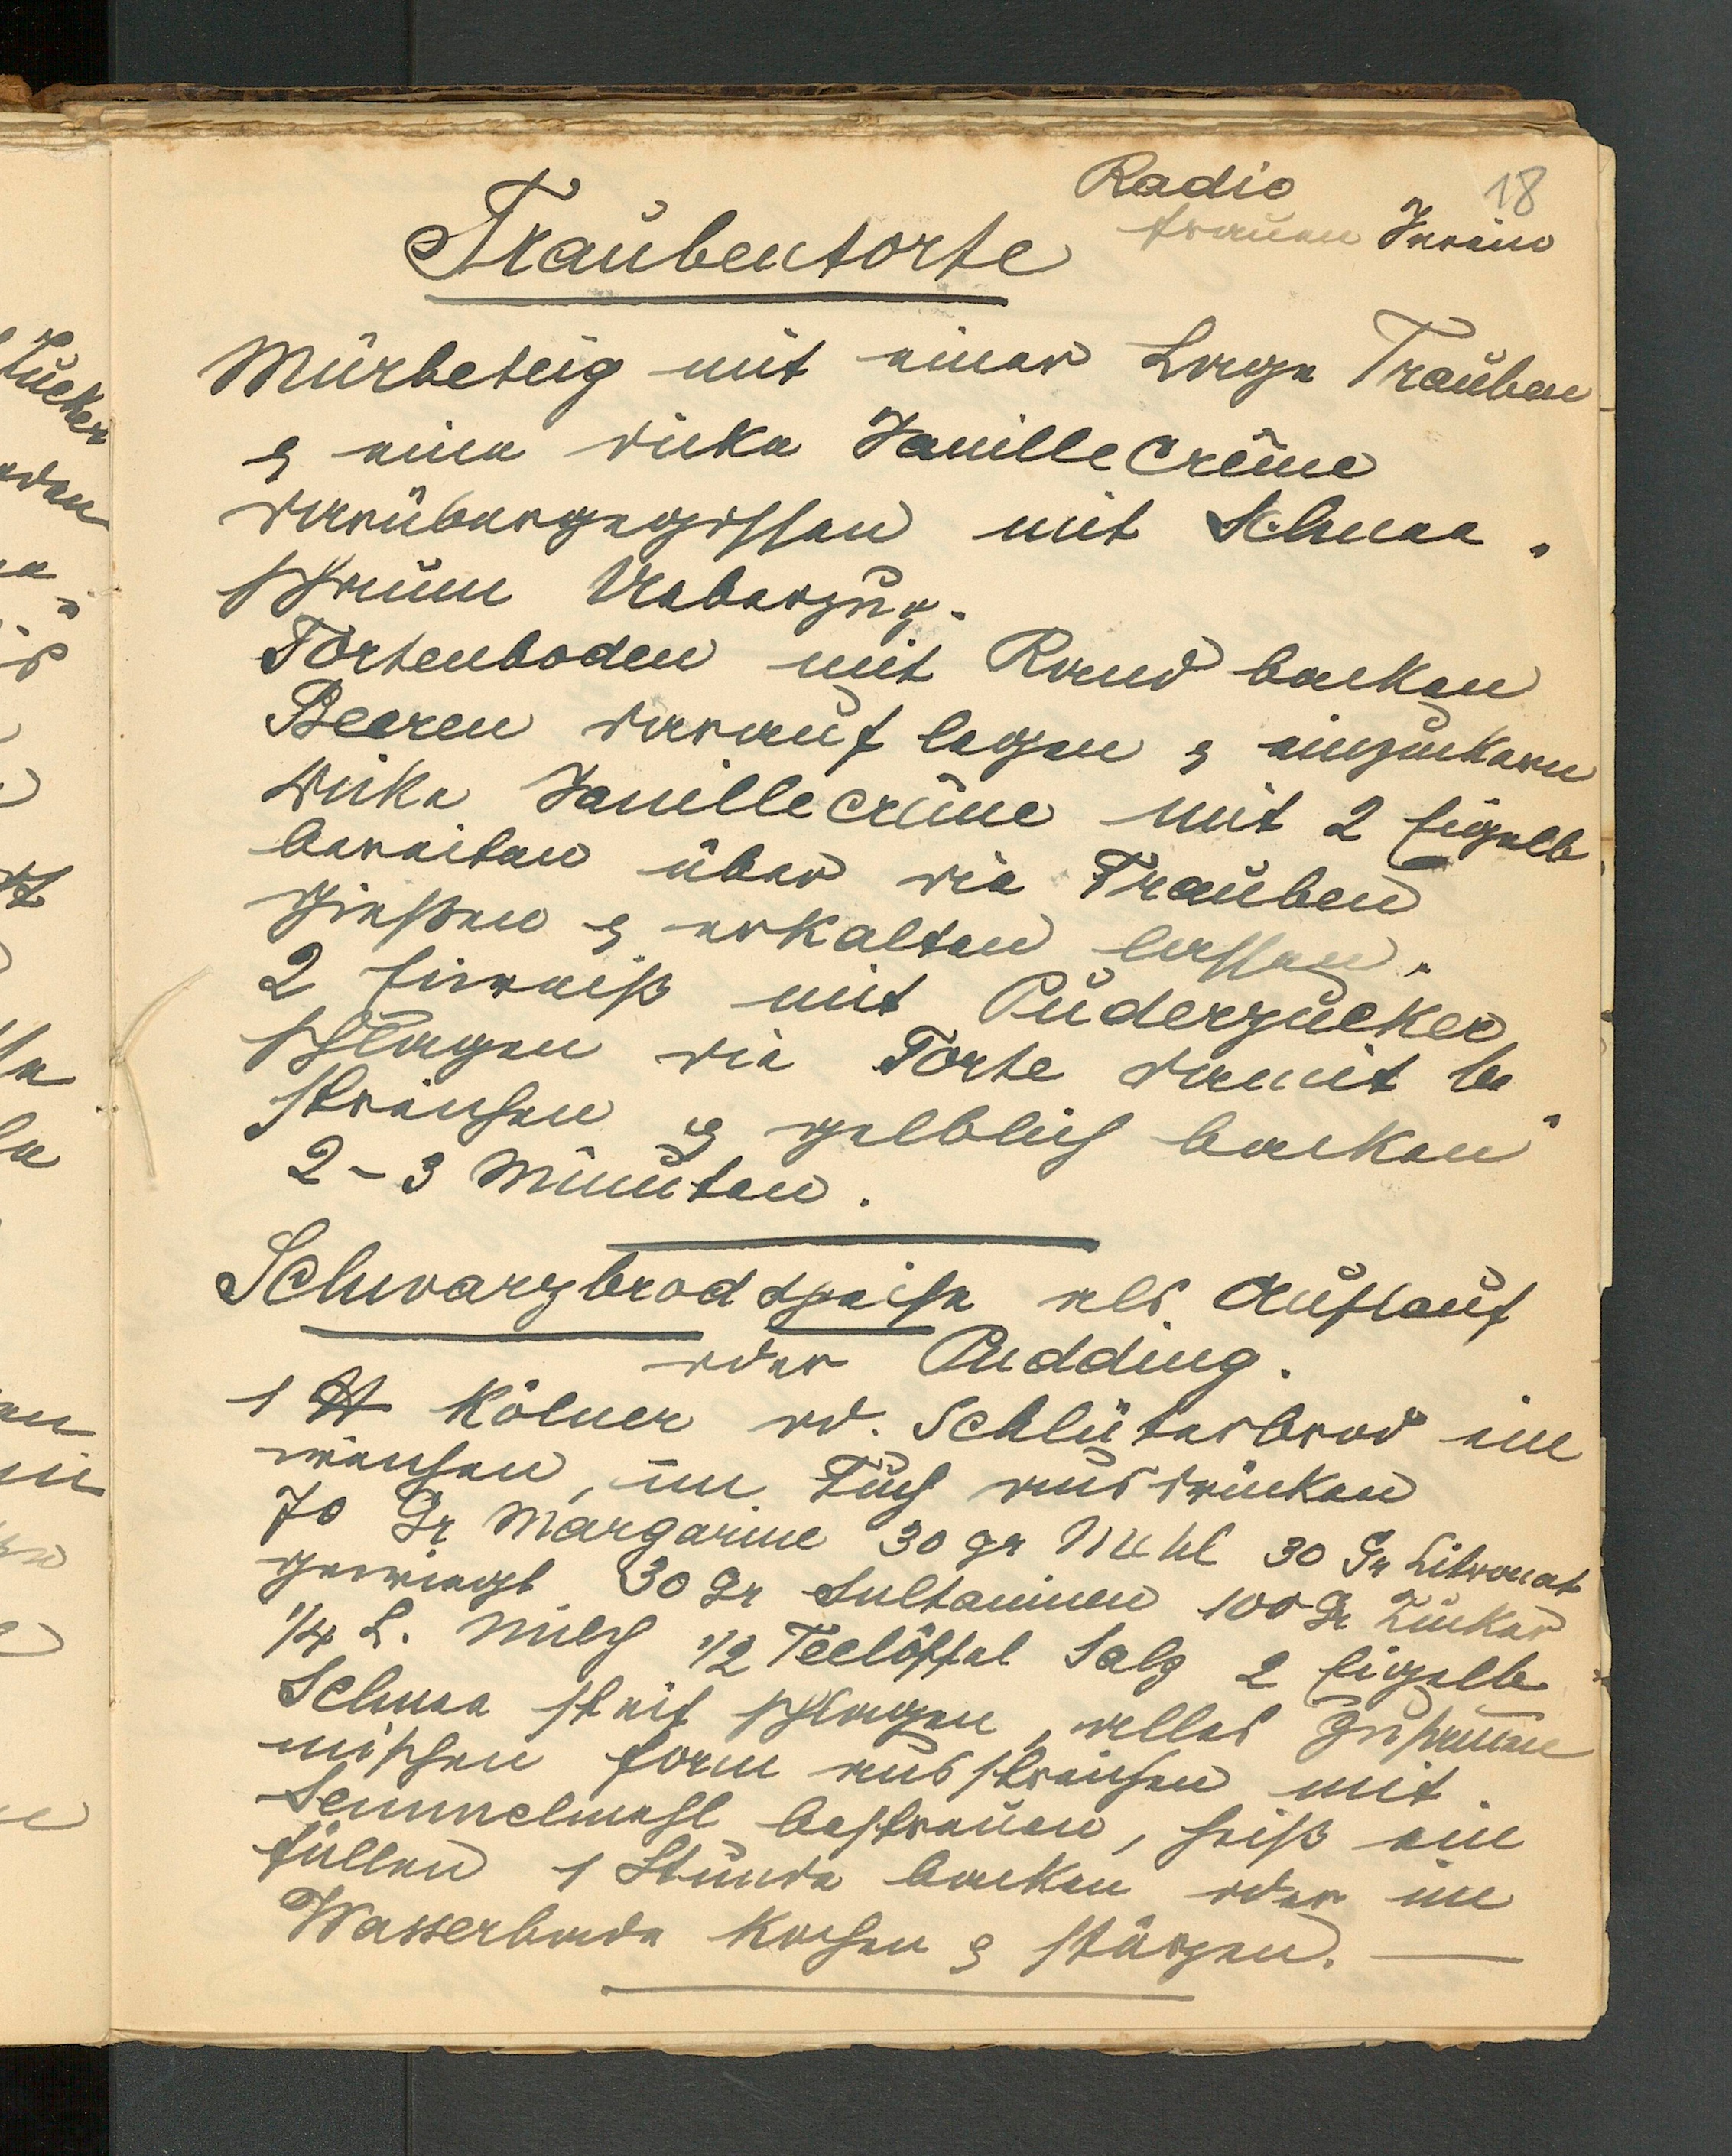 18
Radio
Frauen Verein
Traubentorte
Mürbeteig mit einer Lage Trauben
& eine dicke Vanille Crême
darübergegossen mit Schnee-
schaum Ueberzug.
Tortenboden mit Rand backen
Beeren darauf legen & einzuckern
dicke Vanillecrême mit 2 Eigelb
bereiten über die Trauben
gießen & erkalten lassen.
2 Eiweiß mit Puderzucker
schlagen die Torte damit be-
streichen & gelblich backen
2-3 Minuten.
Schwarzbrodspeise als Auflauf
oder Pudding.
1 ℔ Kölner od. Schlüterbrod ein
weichen, im Tuch ausdrücken
70 Gr Margarine 30 gr Mehl 30 Gr Citronat
gewiegt 30 Gr Sultaninen 100 Gr Zucker
1/4 L. Milch 1/2 Teelöffel Salz 2 Eigelb
Schnee steif schlagen, alles zusammen
mischen Form ausstreichen mit
Semmelmehl bestreuen, heiß ein
füllen 1 Stunde backen oder im
Wasserbade kochen & stürzen.